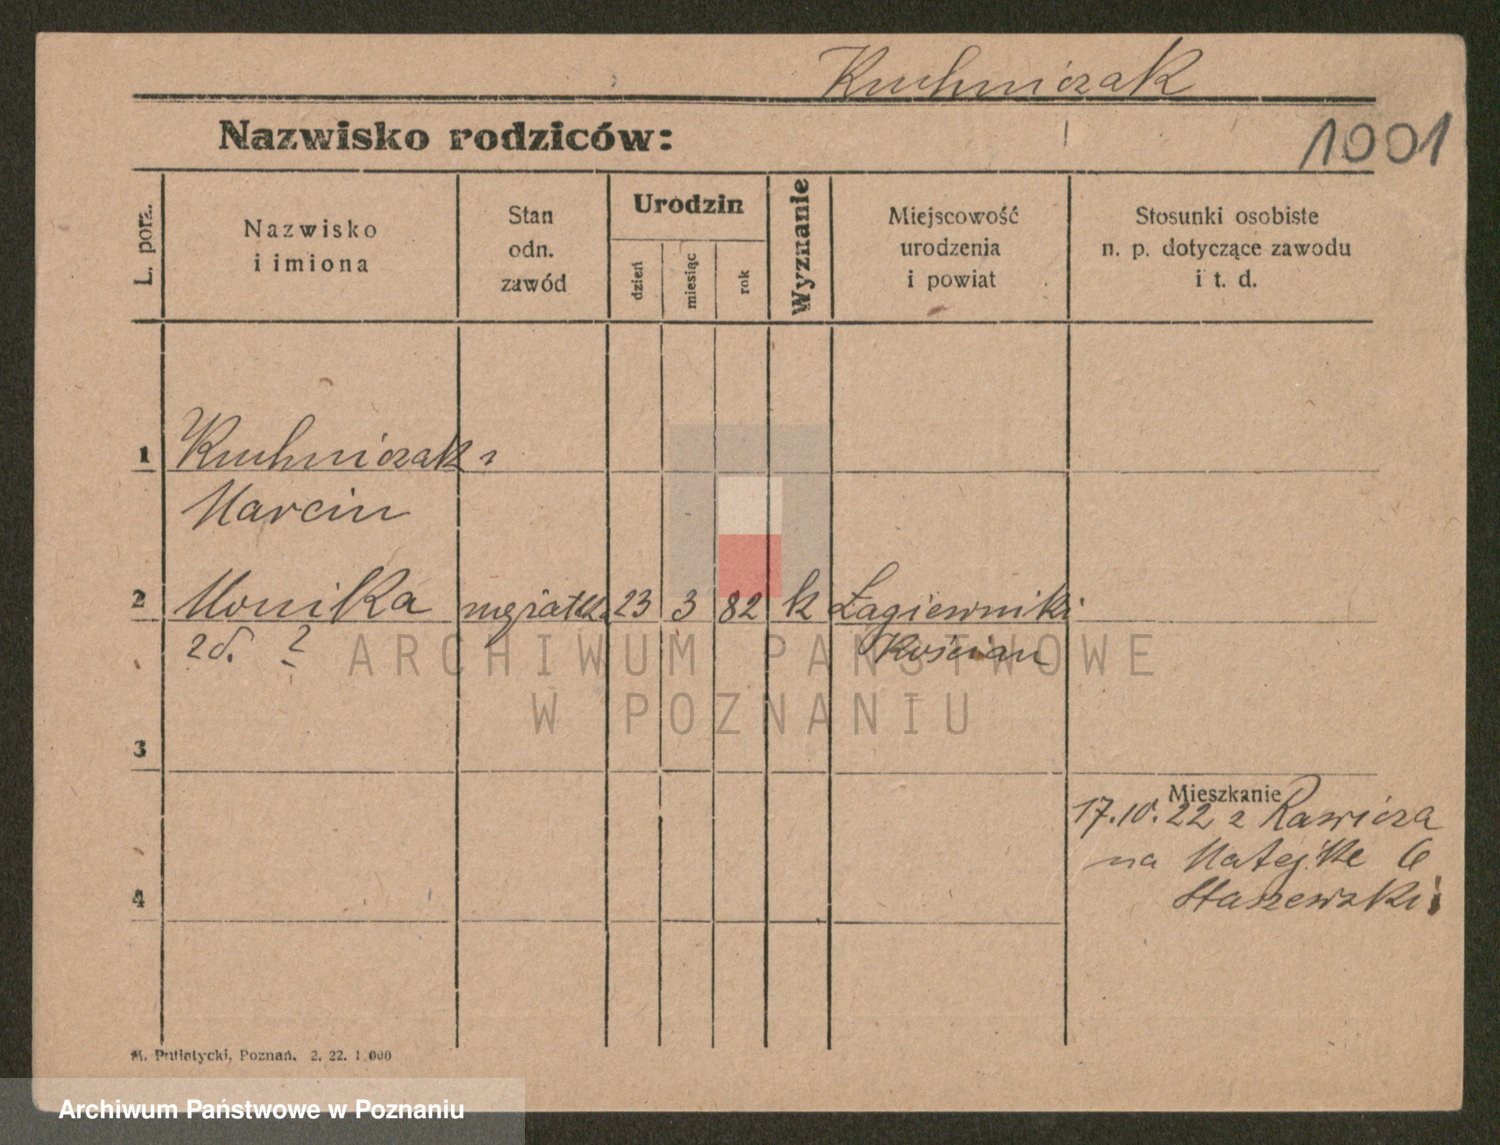 Kuchniczak
Nazwisko rodziców:
1001
L. porz.
Nazwisko
i imiona
Stan
odn.
zawód
Urodzin
dzień
miesiąc
rok
Wyznanie
Miejscowość
urodzenia
i powiat
Stosunki osobiste
n. p. dotyczące zawodu
i t. d.
1 Kuchniczak
Marcin
2 Monika mężatka 23 3 82 k Łagiewniki
zd. ? Kościan
ARCHIWUM PAŃSTWOWE
W POZNANIU
3
Mieszkanie
17.10.22 z Rawicza
na Matejki 6
4 Staszewski
M. Putiatycki, Poznań. 2. 22. 1 000
Archiwum Państwowe w Poznaniu